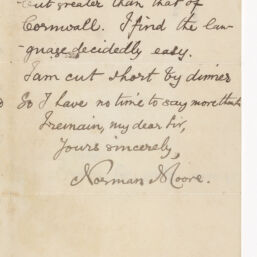 but greater than that of
Cornwall. I find the lan-
guage decidedly easy.
I am cut short by dinner
So I have no time to say more than
I remain, my dear Sir,
Yours sincerely,
Norman Moore.